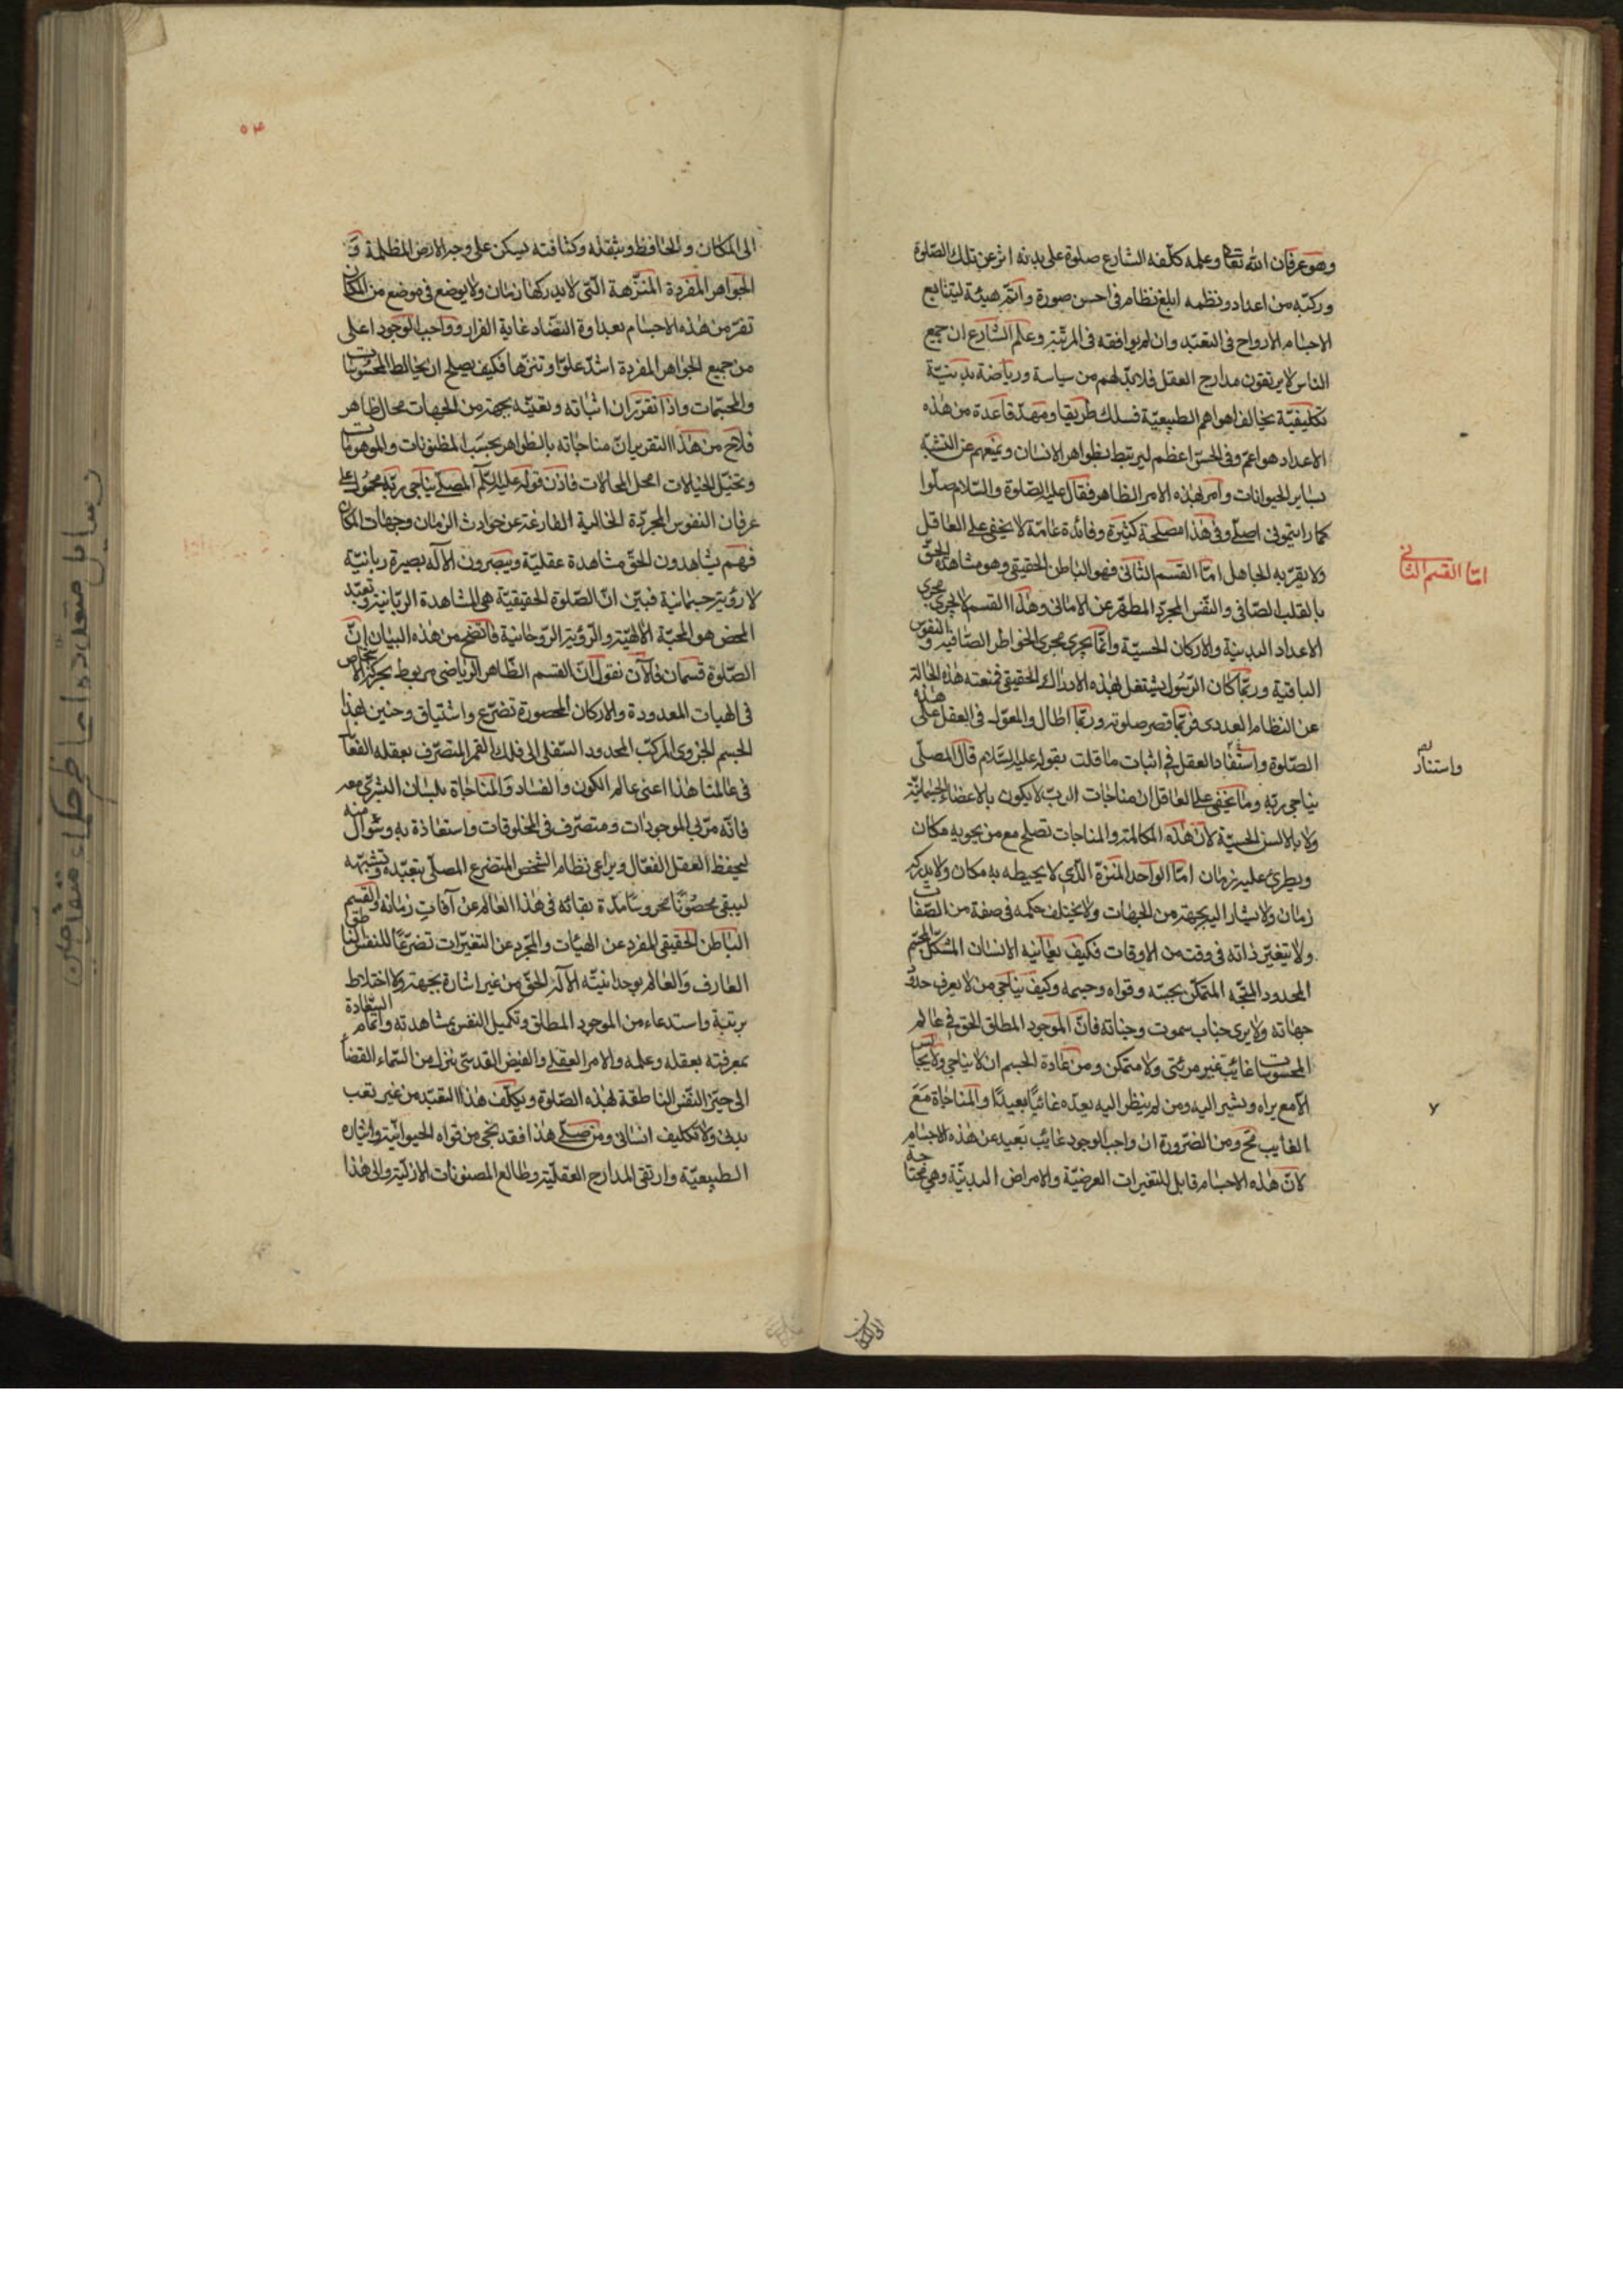 وهو عرفان الله تعالى وعلمه كلّفه الشارع صلوة على بدنه اثر عن تلك الصّلوة
وركّبه من اعداد ونظمه ابلغ نظام فى احسن صورة واتمّ هيئة ليتابع
الاجسام الارواح فى التعبّد وان لم يوافقه فى المرتبة وعلم الشارع ان جميع
الناس لا يرتقون مدارج العقل فلا بدّ لهم من سياسة ورياضة بدنيّة
تكليفيّة يخالف اهواهم الطبيعيّة فسلك طريقا ومهّد قاعدة من هذه
الاعداد هو اعمّ وفى الحسّ اعظم ليرتبط بظواهر الانسان ويمنعهم عن التشبّه
بساير الحيوانات وامر بهذه الامر الظاهر فقال عليه الصّلوة والسّلام صلّوا
كما رايتمونى اصلّى وفى هذا مصلحة كثيرة وفائدة عامّة لا يخفى على العاقل
ولا يقرّ به الجاهل امّا القسم الثانى فهو الباطن الحقيقى وهو مشاهدة الحقّ
بالقلب الصّافى والنّفس المجرّد المطهّر عن الامانى وهذا القسم لا يجرى مجرى
الاعداد البدنية والاركان الحسيّة وانّما يجرى مجرى الخواطر الصّافية والنفوس
الباقية وربّما كان الرّسول يشتغل بهذه الادراك الحقيقى فمنعته هذه الحالة
عن النظام العددى فربّما قصر صلوته وربّما اطال والمعوّل فى العقل على هذه
الصّلوة واستفاد العقل فى اثبات ما قلت بقوله عليه السّلام قال المصلّى
يناجى ربّه وما يخفى على العاقل ان مناجات الربّ لا يكون بالاعضاء الجسمانيّة
ولا بالالسن الحسيّة لانّ هذه المكالمة والمناجات تصلح مع من يحويه مكان
ويطرئ عليه زمان امّا الواحد المنزّه الّذى لا يحيطه به مكان ولا يدركه
زمان ولا يشار اليه بجهة من الجهات ولا يختلف حكمه فى صفة من الصّفات
ولا يتغيّر ذاته فى وقت من الاوقات فكيف يعاينه الانسان المشكّل المجسّم
المحدود المتجّه المتمكّن بجسّه وقواه وجسمه وكيف يناجى من لا يعرف حدود
جهاته ولا يرى جناب سموت وجناته فانّ الموجود المطلق الحق فى عالم
المحسوسات غائب غير مرئى ولا متمكن ومن عادة الجسم ان لا يناجى ولا يجالس
الّا مع يراه ويشير اليه ومن لم ينظر اليه يعدّه غائبًا بعيدًا والمناجاة مع
الغايب مح ومن الضّرورة ان واجب الوجود غائب بعيد عن هذه الاجسام
لانّ هذه الاجسام قابل للتغيرات العرضيّة والامراض البدنيّة وهى محتاجة
امّا القسم الثانى
واستناد
٧
الى المكان
٥٣
الى المكان والحافظ وبثقله وكثافته يسكن على وجه الارض المظلمة و
الجواهر المفردة المنزّهة الّتى لا يدركها زمان ولا يوضع فى موضع من المكان
تفرّ من هذه الاجسام بعداوة التضّاد غاية الفرار وواجب الوجود اعلى
من جميع الجواهر المفردة اشدّ علوّا وتنزّها فكيف يصلح ان يخالط المحسوسات
والمجسّمات واذا تقرّر ان اثباته وتعيّنه بجهة من الجهات محال ظاهر
فلاح من هذا التقرير انّ مناجاته بالظواهر بحسب المظنونات والموهومات
وتخيّل الخيالات امحل المحالات فاذن قوله عليه السّلام المصلّى يناجى ربّه محمول على
عرفان النفوس المجرّدة الخالية الفارغة عن حوادث الزمان وجهات المكان
فهم يشاهدون الحقّ مشاهدة عقليّة ويبصرون الآله بصيرة ربانيّة
لا رؤية جسمانية فبيّن انّ الصّلوة الحقيقيّة هى المشاهدة الربّانية وتعبّد
المحض هو المحبّة الالهيّة والرّؤية الرّوحانية فاتضح من هذه البيان انّ
الصّلوة قسمان فالآن نقول انّ القسم الظّاهر الرياضى مربوط بحركة الاشخاص
فى الهيات المعدودة والاركان المحصورة تضرّع واشتياق وحنين لهذا
الجسم الجزوى المركّب المحدود السّفلى الى فلك القمر المتصرّف بعقله الفعّال
فى عالمنا هذا اعنى عالم الكون والفساد والمناجاة بلسان البشرى معه
فانّه مرّبى الموجودات ومتصرّف فى المخلوقات واستعاذة به وسؤال منه
ليحفظ العقل الفعّال ويراعى نظام الشخص المتضرع المصلّى بتعبّده وتشبّهه
ليبقى محصونًا محروسًا مدّة بقائه فى هذا العالم عن آفاتِ زمانه والقسم
الباطن الحقيقى المفرد عن الهيئات والمجرّد عن التغيّرات تضرّعًا للنفس الناطقة
العارف والعالم بوحدانيّته الآله الحقّ من غير اشارة بجهة ولا اختلاط
برتبة واستدعاء من الموجود المطلق وتكميل النفس بمشاهدته واتمام السّعادة
بمعرفته بعقله وعلمه والامر العقلى والفيض القدسىّ ينزل من السّماء القضاء
الى حيّز النّفس الناطقة لهذه الصّلوة ويكلّف هذا التعبّد من غير تعب
بدنى ولا تكليف انسانى ومن صلّى هذا فقد نجى من قواه الحيوانيّة واثاره
الطبيعيّة وارتقى المدارج العقليّة وطالع المصنونات الازليّة والى هذا
رسايل متعدّده اعاظم حكماء متقدمين